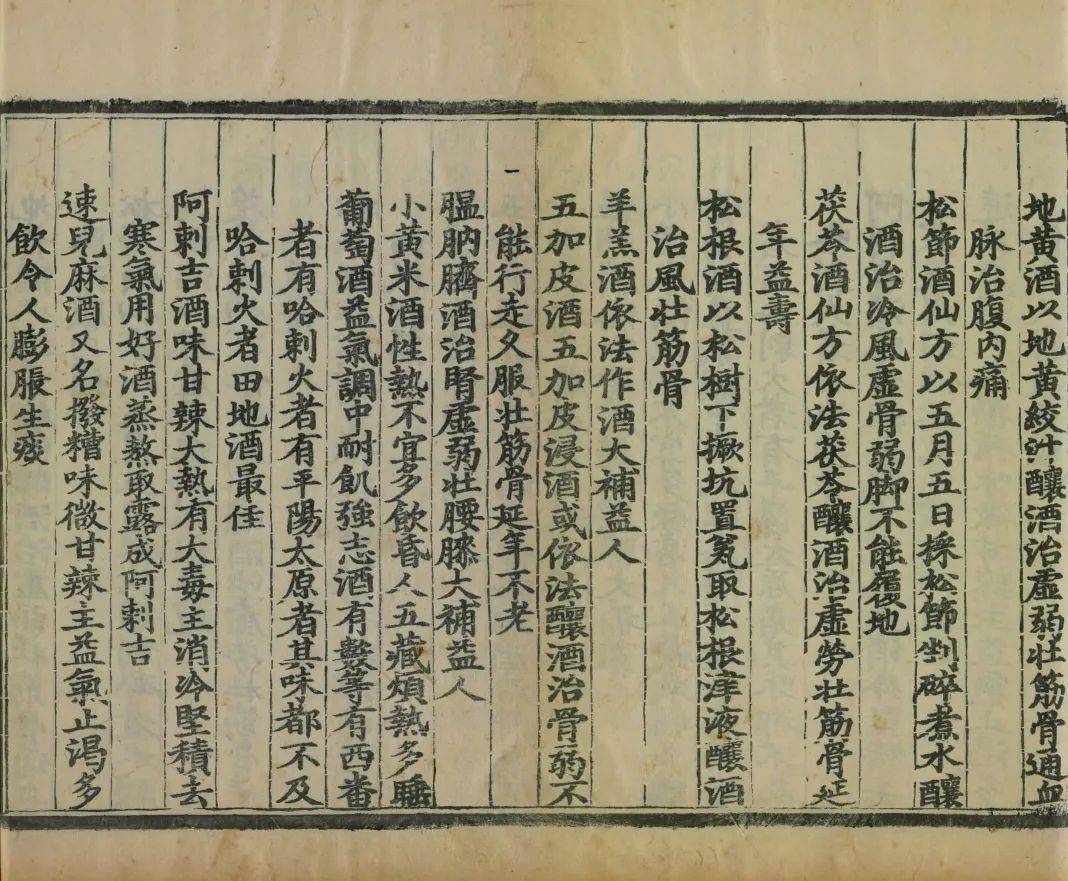 地黃酒以地黃絞汁釀酒治虛弱壯筋骨通血
脉治腹内痛
松節酒仙方以五月五日採松節剉碎煮水釀
酒治冷風虛骨弱脚不能履地
茯苓酒仙方依法茯苓釀酒治虛勞壯筋骨延
年益壽
松根酒以松樹下撅坑置瓮取松根津液釀酒
治風壯筋骨
羊羔酒依法作酒大補益人
五加皮酒五加皮浸酒或依法釀酒治骨弱不
能行走久服壯筋骨延年不老
膃肭臍酒治腎虛弱壯腰膝大補益人
小黃米酒性熱不宜多飲昏人五藏煩熱多睡
葡萄酒益氣調中耐飢強志酒有數等有西番
者有哈剌火者有平陽太原者其味都不及
哈剌火者田地酒最佳
阿剌吉酒味甘辣大熱有大毒主消冷堅積去
寒氣用好酒蒸熬取露成阿剌吉
速兒麻酒又名撥糟味微甘辣主益氣止渴多
飲令人膨脹生痰